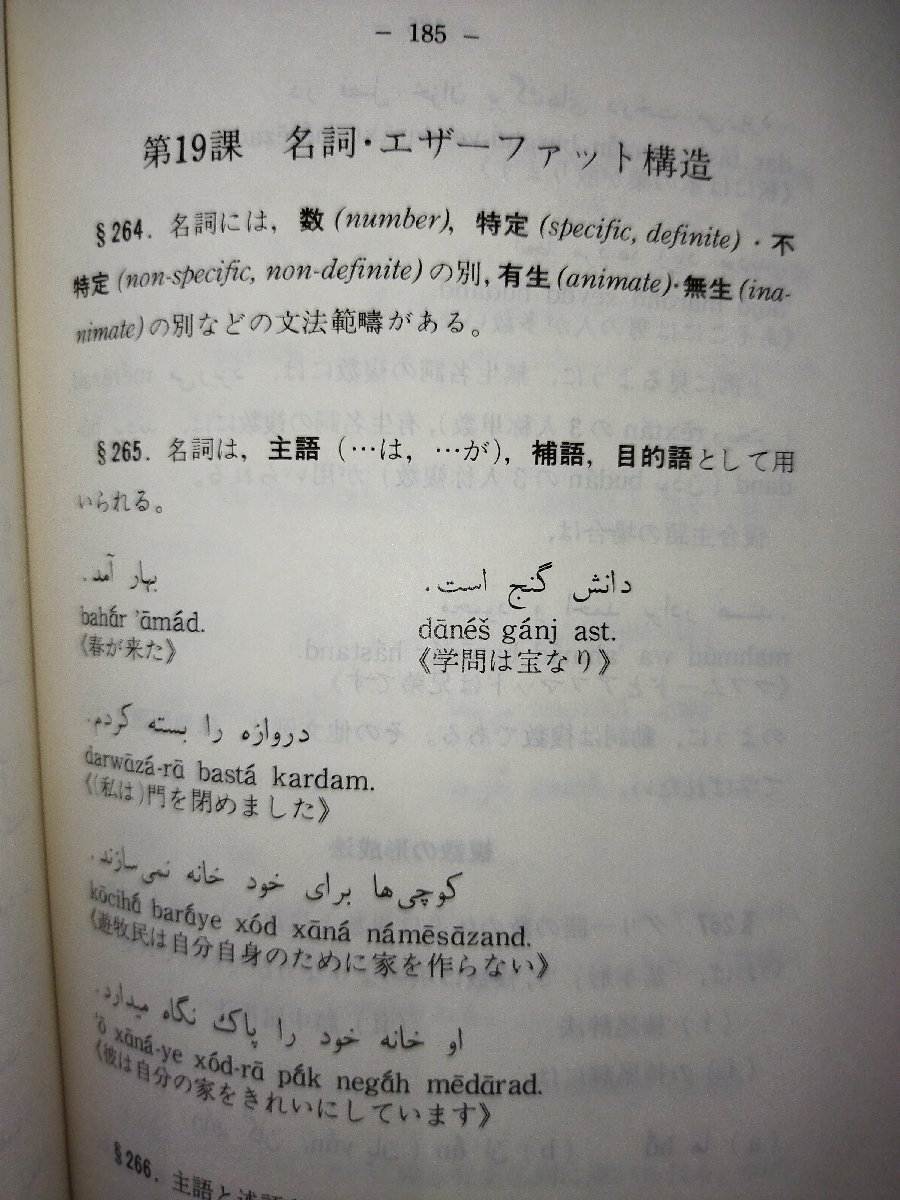 – 185 –
第19課 名詞・エザーファット構造
§264. 名詞には, 数 (number), 特定 (specific, definite)・不
特定 (non-specific, non-definite) の別, 有生 (animate)・無生 (ina-
nimate) の別などの文法範疇がある。
§265. 名詞は, 主語 (…は, …が), 補語, 目的語として用
いられる。
بهار آمد.
bahā́r ’āmád.
《春が来た》
دانش گنج است.
dānéš gánj ast.
《学問は宝なり》
دروازه را بسته کردم.
darwāzá-rā bastá kardam.
《(私は)門を閉めました》
کوچی‌ها برای خود خانه نمی‌سازند.
kōcihā́ barā́ye xód xāná námēsāzand.
《遊牧民は自分自身のために家を作らない》
او خانه خود را پاک نگاه میدارد.
’ō xāná-ye xód-rā pā́k negā́h mēdārad.
《彼は自分の家をきれいにしています》
§266. 主語と述語